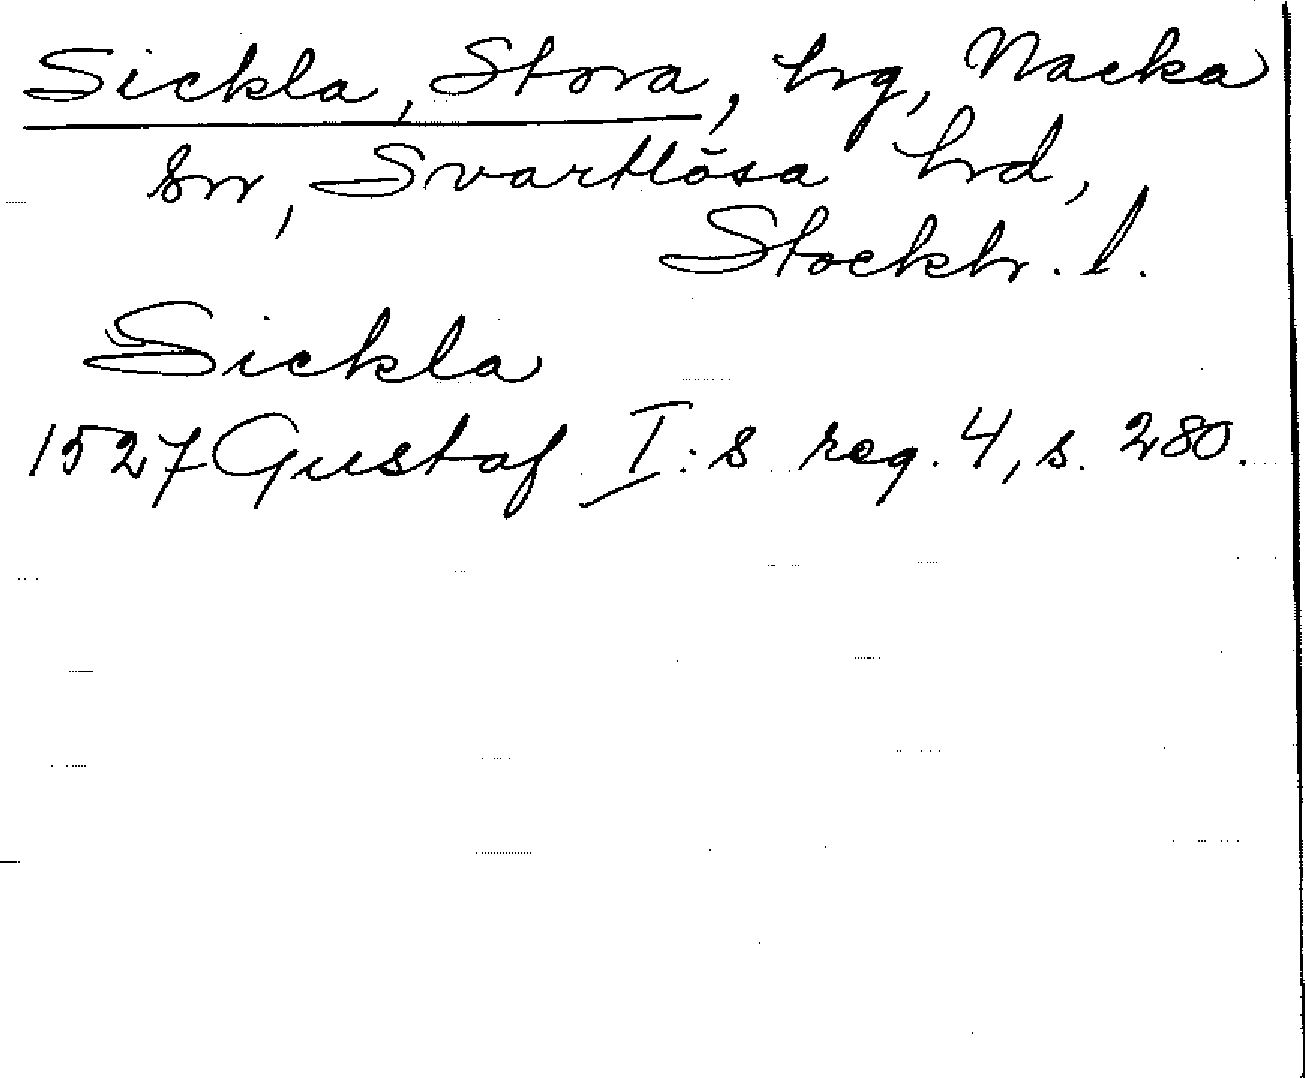 Sickla, Stora, hrg, Nacka
sn, Svartlösa hrd,
Stockh. l.
Sickla
1527 Gustaf I:s reg. 4, s. 280.